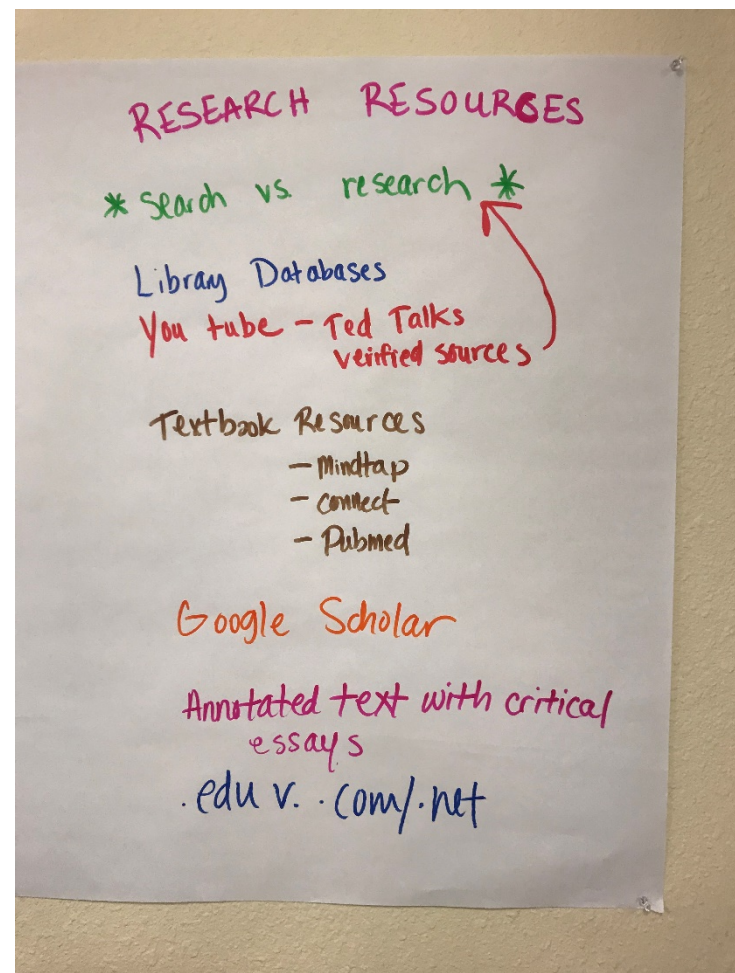 RESEARCH RESOURCES
* Search vs. research *
Library Databases
You tube - Ted Talks
verified sources
Textbook Resources
- Mindtap
- connect
- Pubmed
Google Scholar
Annotated text with critical
essays
.edu v. .com/.net